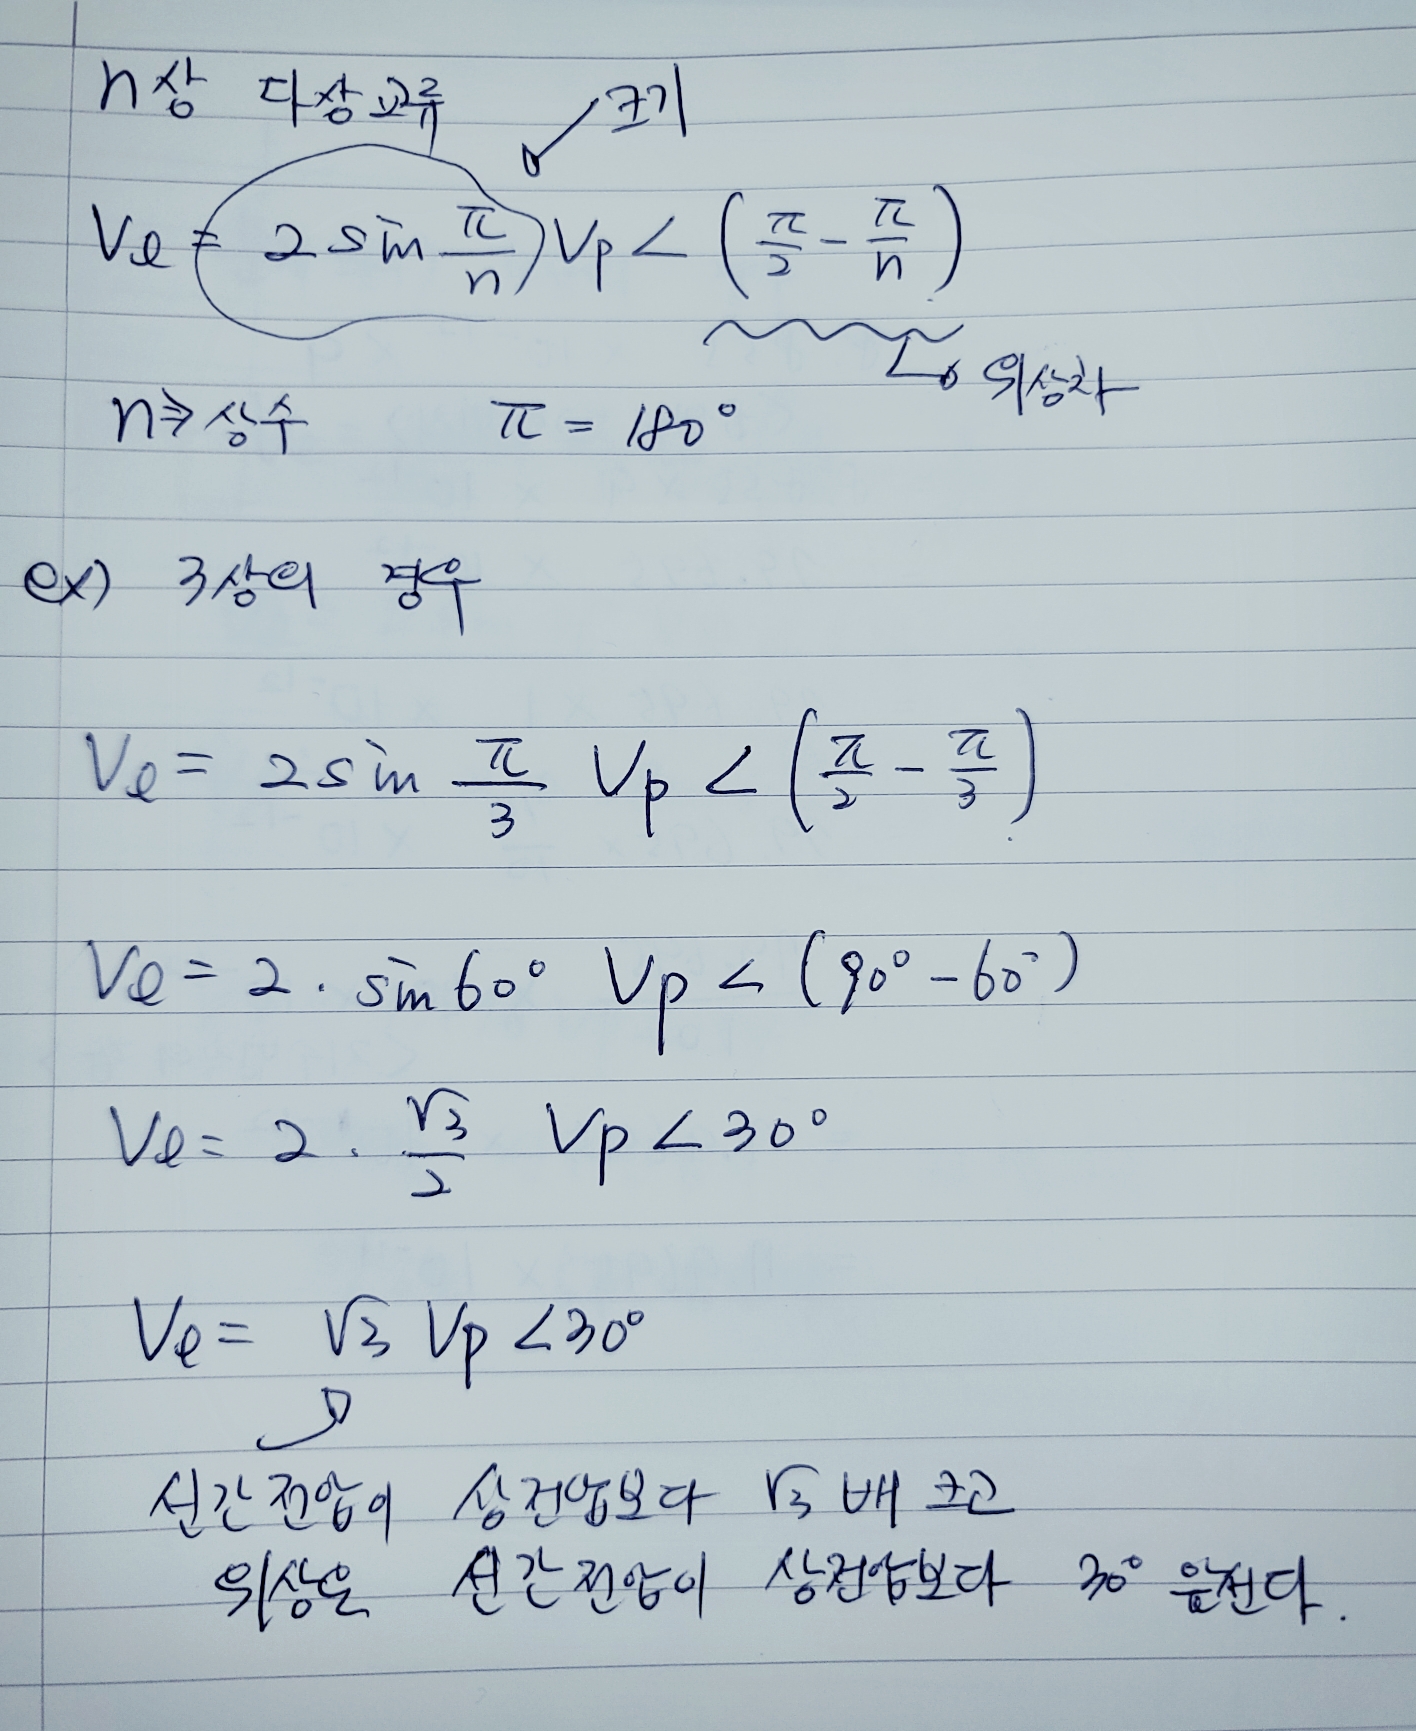 n상 다상교류
크기
Vℓ = 2 sin π/n Vp ∠ (π/2 - π/n)
위상차
n⇒상수 π = 180°
ex) 3상의 경우
Vℓ = 2 sin π/3 Vp ∠ (π/2 - π/3)
Vℓ = 2 · sin 60° Vp ∠ (90° - 60°)
Vℓ = 2 · √3/2 Vp ∠ 30°
Vℓ = √3 Vp ∠ 30°
선간전압이 상전압보다 √3 배 크고
위상은 선간전압이 상전압보다 30° 앞선다.